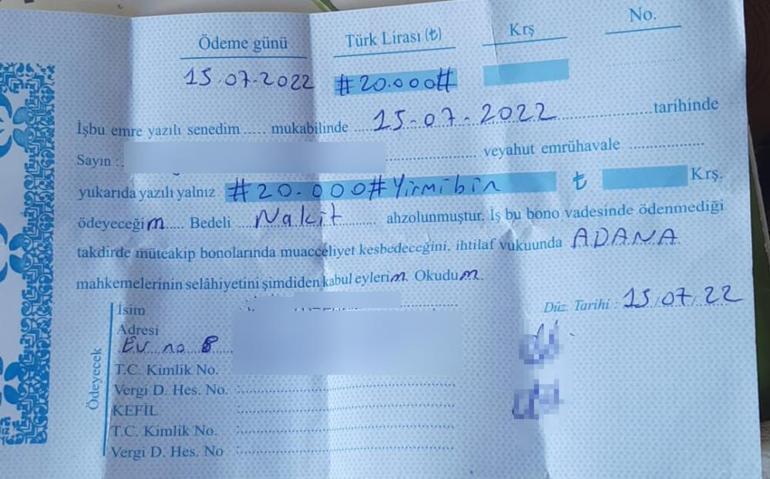 Ödeme günü Türk Lirası (₺) Krş No.
15.07.2022 #20.000#
İşbu emre yazılı senedim ..... mukabilinde ...15-07-2022.... tarihinde
Sayın : ........ veyahut emrühavale ........
yukarıda yazılı yalnız #20.000#Yirmibin ₺ Krş.
ödeyeceğim..... Bedeli ..Nakit...... ahzolunmuştur. İş bu bono vadesinde ödenmediği
takdirde müteakip bonolarında muacceliyet kesbedeceğini, ihtilaf vukuunda ADANA
mahkemelerinin selâhiyetini şimdiden kabul eylerim. Okudum.
Ödeyecek
İsim
Düz. Tarihi : 15.07.22
Adresi
Ev no 8
T.C. Kimlik No.
Vergi D. Hes. No. :
KEFİL
T.C. Kimlik No. :
Vergi D. Hes. No :